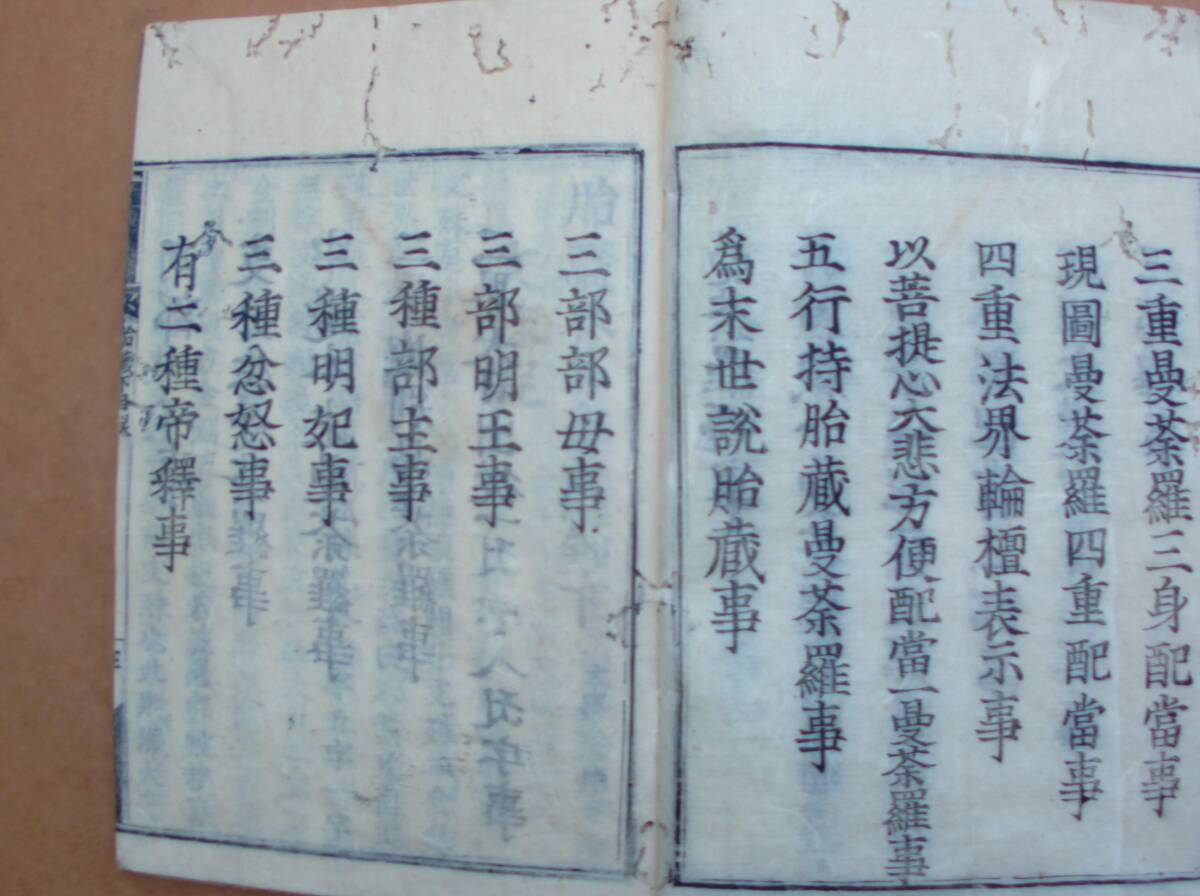 三重曼荼羅三身配當事
現圖曼荼羅四重配當事
四重法界輪檀表示事
以菩提心大悲方便配當一曼荼羅事
五行持胎蔵曼荼羅事
爲末世說胎蔵事
三部部毋事
三部明王事
三種部主事
三種明妃事
三種忿怒事
有二種帝釋事